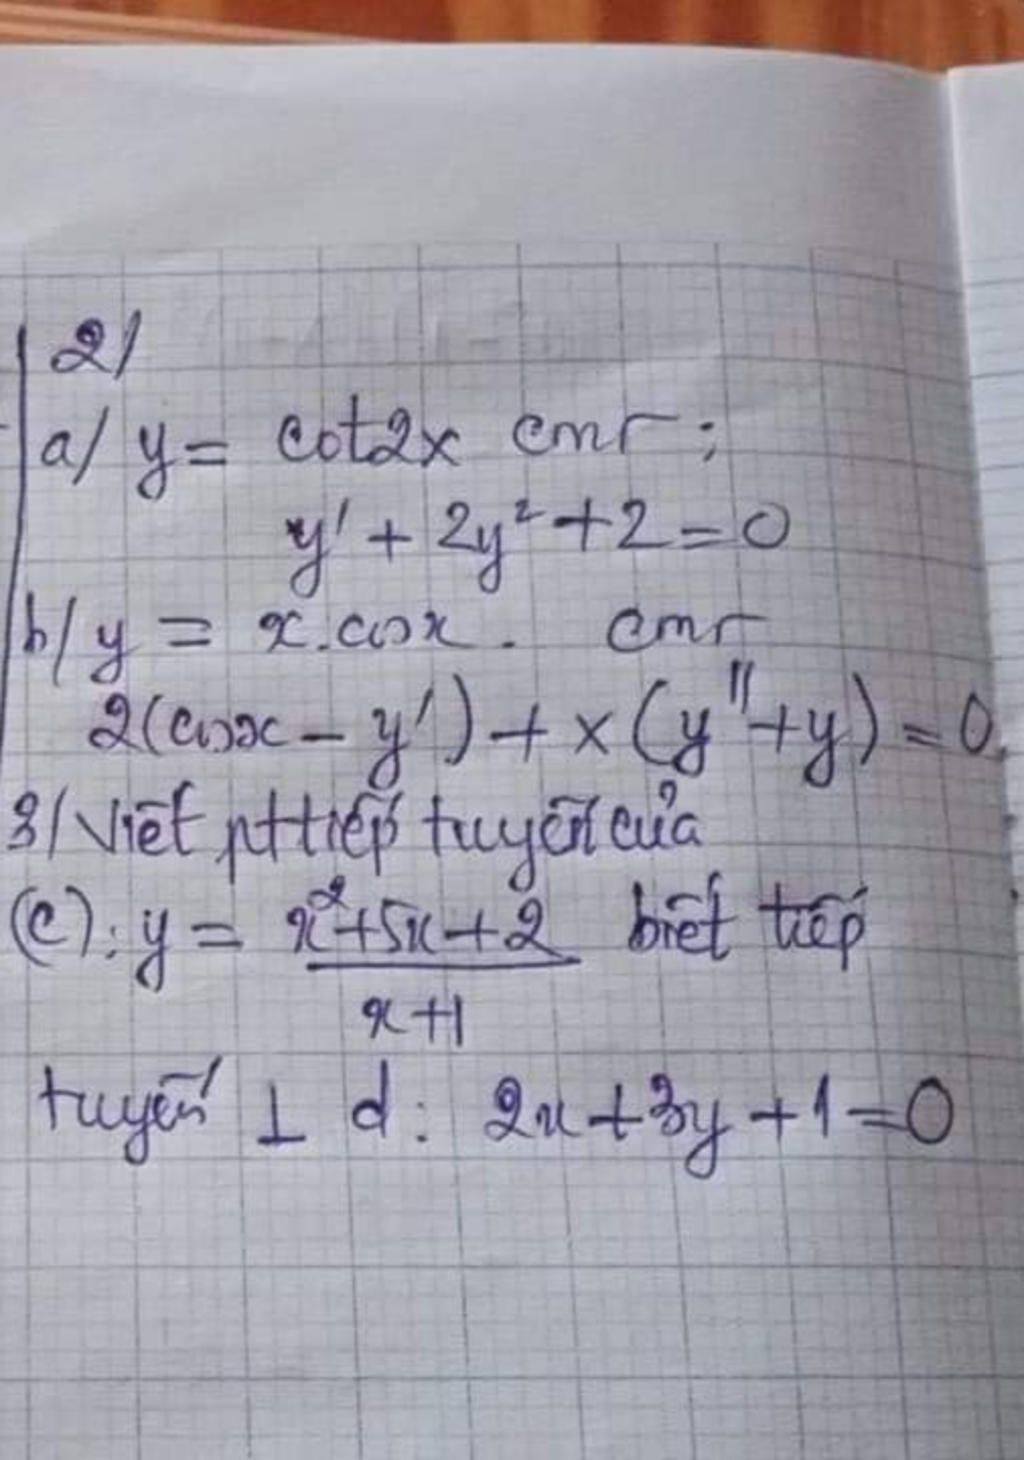 2/
a/ y = cot2x cmr:
y' + 2y² + 2 = 0
b/ y = x.cosx. cmr
2(cosx - y') + x(y" + y) = 0
3/ Viết pt tiếp tuyến của
(C): y = \frac{x²+5x+2}{x+1} biết tiếp
tuyến ⊥ d: 2x+3y+1=0